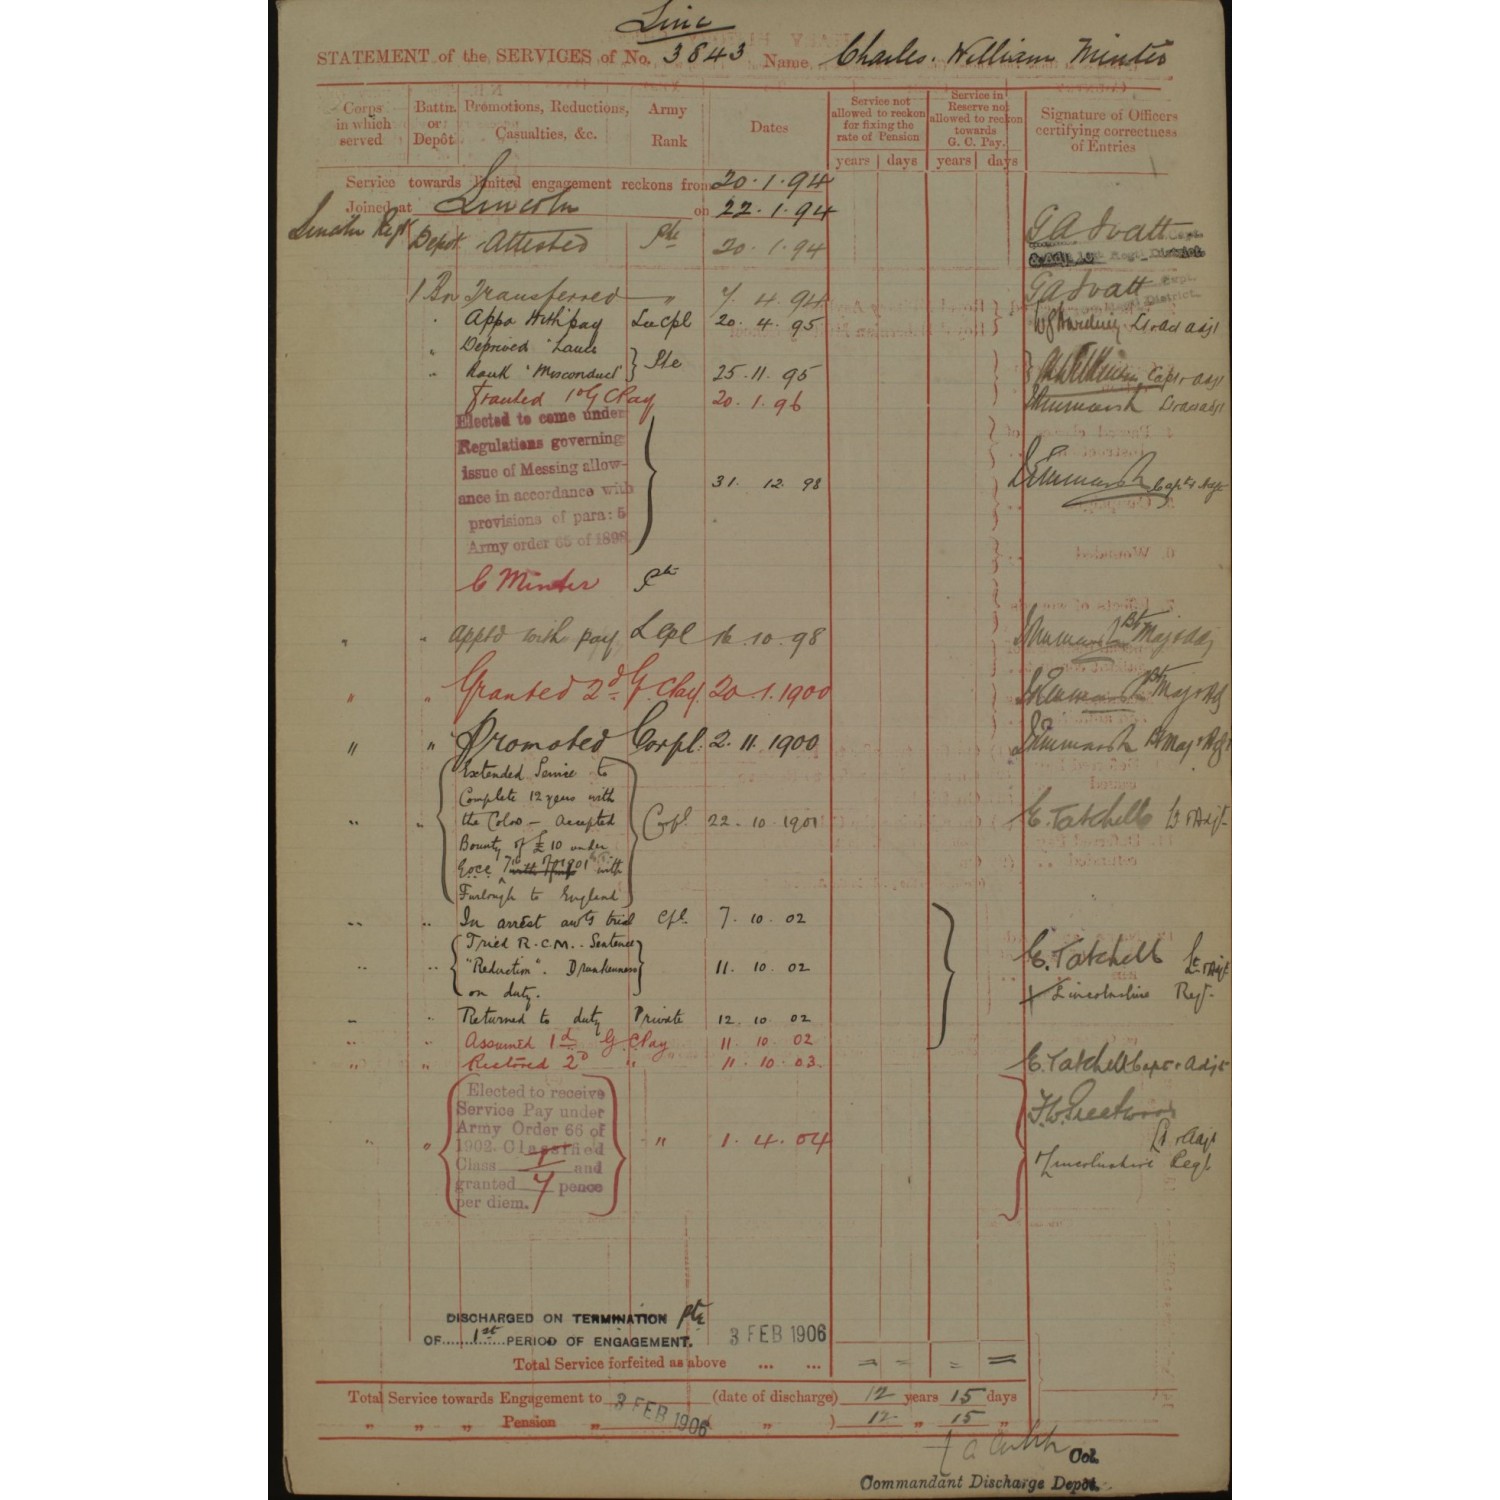 Linc
STATEMENT of the SERVICES of No. 3843 Name Charles. William Minter
Corps in which served
Battn. or Depôt
Promotions, Reductions, Casualties, &c.
Army Rank
Dates
Service not allowed to reckon for fixing the rate of Pension
Service in Reserve not allowed to reckon towards G. C. Pay.
Signature of Officers certifying correctness of Entries
years days years days
Service towards limited engagement reckons from 20.1.94
Joined at Lincoln on 22.1.94
Lincoln Regt Depot Attested Pte 20.1.94 G A Ivatt Capt
& Adj. 10th Regtl District.
1 Bn Transferred " 7.4.94 G A Ivatt Capt.
Regtl District.
" Appd With pay Lce Cpl 20.4.95 Lt & Adjt
" Deprived Lance
" Rank "Misconduct" } Pte 25.11.95 Capt & Adjt
Granted 1st G C Pay 20.1.96 Lt & Adjt
Elected to come under
Regulations governing
issue of Messing allow-
ance in accordance with 31. 12. 98 Capt & Adjt
provisions of para: 5
Army order 65 of 1898
C Minter Pte
" " appt'd with pay L Cpl 16.10.98 Bt Maj & Adj
" " Granted 2d G. C Pay. 20.1.1900 Bt Maj & Adj
" " Promoted Corpl. 2.11.1900 Bt Maj & Adj
Extended Service to
Complete 12 years with
" " the Colrs – accepted Corpl. 22.10.1901 E. Tatchell Lt & Adjt
Bounty of £10 under
with
Furlough to England
" " In arrest awtg trial Cpl. 7.10.02
Tried R.C.M. Sentence
" " "Reduction". Drunkenness 11.10.02 E. Tatchell Lt & Adjt
on duty. Lincolnshire Regt.
" " Returned to duty Private 12.10.02
" " Assumed 1d G. C Pay 11.10.02
" " Restored 2d " " 11.10.03. E. Tatchell Capt & Adjt
Elected to receive
Service Pay under F.W. Greetwood
Army Order 66 of Lt & Adjt
" " 1902. Classified " 1.4.04
Class 1 and Lincolnshire Regt.
granted 7 pence
per diem.
DISCHARGED ON TERMINATION Pte
OF 1st PERIOD OF ENGAGEMENT. 3 FEB 1906
Total Service forfeited as above ... ... = = = =
Total Service towards Engagement to 3 FEB 1906 (date of discharge) 12 years 15 days
" " " Pension " 3 FEB 1906 ( " ) 12 " 15 "
Col.
Commandant Discharge Depôt.